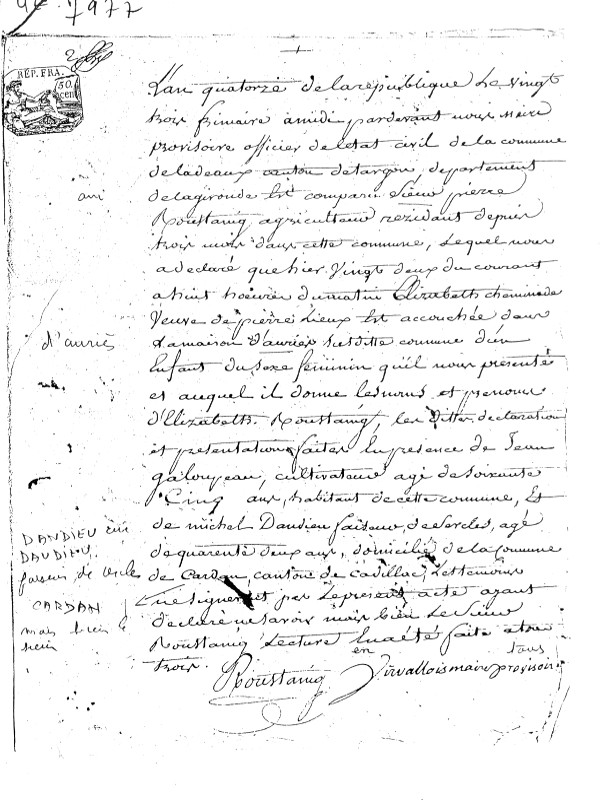 7977
REP. FRA.
50 cen
L'an quatorze de la republique Le vingt
trois frimaire a midi pardevant nous maire
provisoire officier de letat civil de la commune
de ladeaux canton de targon, departement
de la gironde Est comparu Sieur pierre
Roustaing agriculteur rezidant depuis
trois mois dans cette commune, Lequel nous
a declaré que hier Vingt deux du courant
a huit heures du matin Elizabeth cheminade
Veuve de pierre Lieux Est accouchée dans
Lamaison d'auriès susditte commune d'un
Enfant du sexe feminin qu'il nous presenté
et auquel il donne les noms et prenoms
d'Elizabeth Roustaing, les dittes declaration
et presentation faites En presence de Jean
galoupeau, cultivateur agé de soixante
Cinq ans, habitant de cette commune, Et
de michel Dandieu faiseur de Sercles, agé
de quarente deux ans, domicilié de la Commune
de Cardan, canton de Cadillac; Les temoins
ne signeront pas Le present acte ayant
declaré ne savoir mais bien Le Sieur
Roustaing Lecture En a été faite a tous
trois.
Roustaing
en
tous
Virvallois maire provisoir
d'auriès
DANDIEU
DAUDIEU
faiseur de cercles
CARDAN
mais bien le
sieur